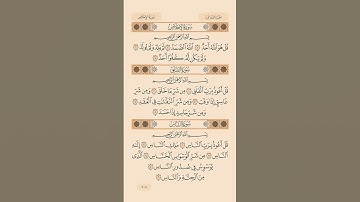 سورة الإخلاص
بسم الله الرحمن الرحيم
قُلْ هُوَ اللَّهُ أَحَدٌ ۝ اللَّهُ الصَّمَدُ ۝ لَمْ يَلِدْ وَلَمْ يُولَدْ ۝
وَلَمْ يَكُن لَّهُ كُفُوًا أَحَدٌ ۝
سورة الفلق
بسم الله الرحمن الرحيم
قُلْ أَعُوذُ بِرَبِّ الْفَلَقِ ۝ مِن شَرِّ مَا خَلَقَ ۝ وَمِن شَرِّ
غَاسِقٍ إِذَا وَقَبَ ۝ وَمِن شَرِّ النَّفَّاثَاتِ فِي الْعُقَدِ ۝
وَمِن شَرِّ حَاسِدٍ إِذَا حَسَدَ ۝
سورة الناس
بسم الله الرحمن الرحيم
قُلْ أَعُوذُ بِرَبِّ النَّاسِ ۝ مَلِكِ النَّاسِ ۝ إِلَٰهِ
النَّاسِ ۝ مِن شَرِّ الْوَسْوَاسِ الْخَنَّاسِ ۝ الَّذِي
يُوَسْوِسُ فِي صُدُورِ النَّاسِ ۝
مِنَ الْجِنَّةِ وَالنَّاسِ ۝